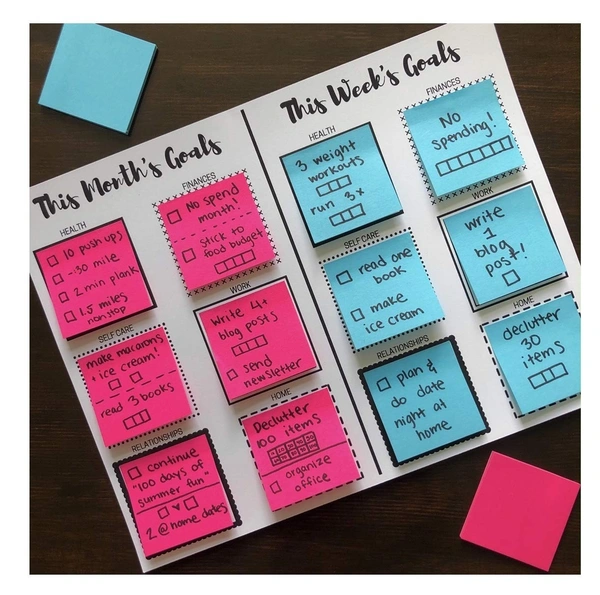 This Month's Goals
HEALTH
10 push ups
2 min plank
1.5 miles
nonstop
FINANCES
No spend
month!
stick to
food budget
SELF CARE
make macarons
+ ice cream!
read 3 books
WORK
Write 4+
blog posts
send
newsletter
RELATIONSHIPS
continue
"100 days of
summer fun"
2 @home dates
HOME
Declutter
100 items
organize
office
This Week's Goals
HEALTH
3 weight
workouts
run 3x
FINANCES
No
spending!
SELF CARE
read one
book
make
ice cream
WORK
write
1
blog
post!
RELATIONSHIPS
plan &
do date
night at
home
HOME
declutter
30
items